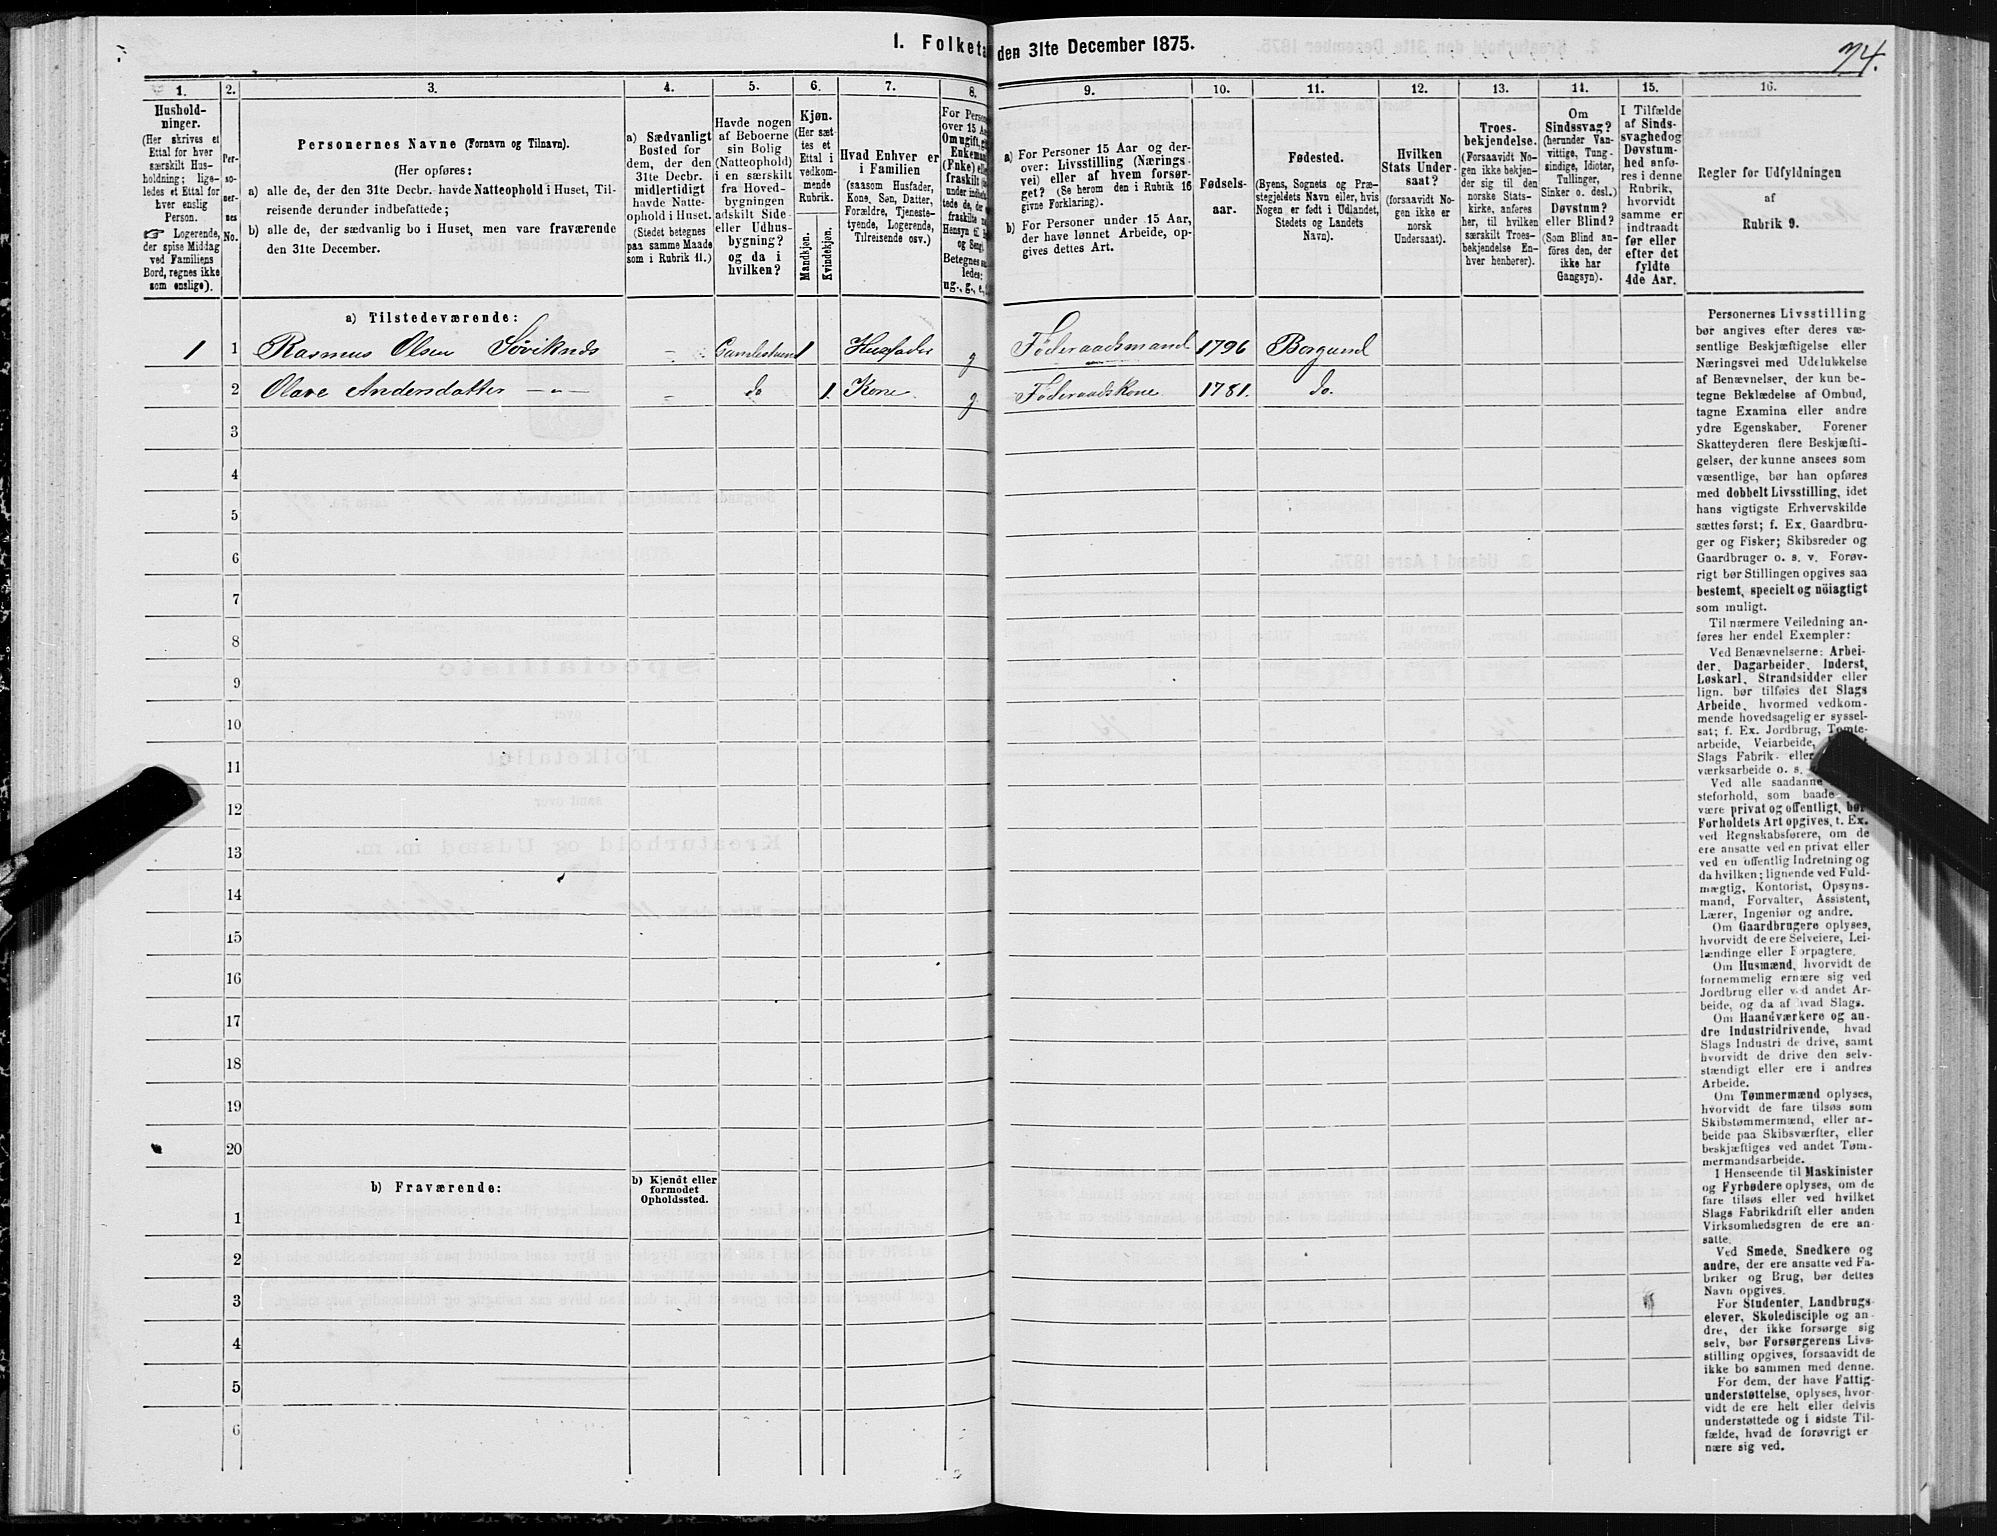 1. Folketa
den 31te December 1875.
74.
1.
2.
3.
4.
5.
6.
7.
8.
9.
10.
11.
12.
13.
14.
15.
16.
Hushold-
ninger.
(Her skrives et
Ettal for hver
særskilt Hus-
holdning; lige-
ledes et Ettal for
hver enslig
Person.
☞ Logerende,
der spise Middag
ved Familiens
Bord, regnes ikke
som enslige).
Per-
so-
ner-
nes
No.
Personernes Navne (Fornavn og Tilnavn).
(Her opføres:
a) alle de, der den 31te Decbr. havde Natteophold i Huset, Til-
reisende derunder indbefattede;
b) alle de, der sædvanlig bo i Huset, men vare fraværende
den 31te December.
a) Sædvanligt
Bosted for
dem, der den
31te Decbr.
midlertidigt
havde Natte-
ophold i Huset.
(Stedet betegnes
paa samme Maade
som i Rubrik 11.)
Havde nogen
af Beboerne
sin Bolig
(Natteophold)
i en særskilt
fra Hoved-
bygningen
adskilt Side-
eller Udhus-
bygning?
og da i
hvilken?
Kjøn.
(Her sæt-
tes et
Ettal i
vedkom-
mende
Rubrik.
Mandkjøn.
Kvindekjøn.
Hvad Enhver er
i Familien
(saasom Husfader,
Kone, Søn, Datter,
Forældre, Tjeneste-
tyende, Logerende,
Tilreisende osv.)
For Perso
over 15 Aa
Om ugift, g
Enkeman
(Enke) elle
fraskilt
Betegnes sa
ledes:
ug., g., e.,
a) For Personer 15 Aar og der-
over: Livsstilling (Nærings-
vei) eller af hvem forsør-
get? (Se herom den i Rubrik 16
givne Forklaring).
b) For Personer under 15 Aar,
der have lønnet Arbeide, op-
gives dettes Art.
Fødsels-
aar.
Fødested.
(Byens, Sognets og Præ-
stegjeldets Navn eller, hvis
Nogen er født i Udlandet,
Stedets og Landets
Navn).
Hvilken
Stats Under-
saat?
(forsaavidt No-
gen ikke er
norsk
Undersaat).
Troes-
bekjendelse.
(Forsaavidt No-
gen ikke bekjen-
der sig til den
norske Stats-
kirke, anføres
her, til hvilken
særskilt Troes-
bekjendelse En-
hver henhører).
Om
Sindssvag?
(herunder Van-
vittige, Tung-
sindige, Idioter,
Tullinger,
Sinker o. desl.)
Døvstum?
eller Blind?
(Som Blind an-
føres den, der
ikke har
Gangsyn).
I Tilfælde
af Sinds-
svaghed og
Døvstum-
hed anfø-
res i denne
Rubrik,
hvorvidt
samme er
indtraadt
før eller
efter det
fyldte
4de Aar.
Regler for Udfyldningen
af
Rubrik 9.
a) Tilstedeværende:
1 1 Rasmus Olsen Søviknds - Gamlestuen 1 Husfader g Føderaadsmand 1796 Borgund
2 Olave Andersdatter -„- - do 1. Kone g Føderaadskone 1781. do.
3
4
5
6
7
8
9
10
11
12
13
14
15
16
17
18
19
20
b) Fraværende:
b) Kjendt eller
formodet
Opholdssted.
1
2
3
4
5
6
Personernes Livsstilling
bør angives efter deres væ-
sentlige Beskjæftigelse eller
Næringsvei med Udelukkelse
af Benævnelser, der kun be-
tegne Beklædelse af Ombud,
tagne Examina eller andre
ydre Egenskaber. Forener
Skatteyderen flere Beskjæfti-
gelser, der kunne ansees som
væsentlige, bør han opføres
med dobbelt Livsstilling, idet
hans vigtigste Erhvervskilde
sættes først; f. Ex. Gaardbru-
ger og Fisker; Skibsreder og
Gaardbruger o. s. v. Forøv-
rigt bør Stillingen opgives saa
bestemt, specielt og nöiagtigt
som muligt.
Til nærmere Veiledning an-
føres her endel Exempler:
Ved Benævnelserne: Arbei-
der, Dagarbeider, Inderst,
Løskarl, Strandsidder eller
lign. bør tilføies det Slags
Arbeide, hvormed vedkom-
mende hovedsagelig er syssel-
sat; f. Ex. Jordbrug, Tomte-
arbeide, Veiarbeide,
Slags Fabrik- eller
værksarbeide o. s.
Ved alle saadanne
steforhold, som baade
være privat og offentligt, bør
Forholdets Art opgives, t. Ex.
ved Regnskabsførere, om de
ere ansatte ved en privat eller
ved en offentlig Indretning og
da hvilken; lignende ved Fuld-
mægtig, Kontorist, Opsyns-
mand, Forvalter, Assistent,
Lærer, Ingeniør og andre.
Om Gaardbrugere oplyses,
hvorvidt de ere Selveiere, Lei-
lændinge eller Forpagtere.
Om Husmænd, hvorvidt de
fornemmelig ernære sig ved
Jordbrug eller ved andet Ar-
beide, og da af hvad Slags.
Om Haandværkere og an-
dre Industridrivende, hvad
Slags Industri de drive, samt
hvorvidt de drive den selv-
stændigt eller ere i andres
Arbeide.
Om Tømmermænd oplyses,
hvorvidt de fare tilsøs som
Skibstømmermænd, eller ar-
beide paa Skibsværfter, eller
beskjæftiges ved andet Tøm-
mermandsarbeide.
I Henseende til Maskinister
og Fyrbødere oplyses, om de
fare tilsøs eller ved hvilket
Slags Fabrikdrift eller anden
Virksomhedsgren de ere an-
satte.
Ved Smede, Snedkere og
andre, der ere ansatte ved Fa-
briker og Brug, bør dettes
Navn opgives.
For Studenter, Landbrugs-
elever, Skoledisciple og an-
dre, der ikke forsørge sig
selv, bør Forsørgerens Livs-
stilling opgives, forsaavidt de
ikke bo sammen med denne.
For dem, der have Fattig-
understøttelse, oplyses, hvor-
vidt de ere helt eller delvis
understøttede og i sidste Til-
fælde, hvad de forøvrigt er-
nære sig ved.